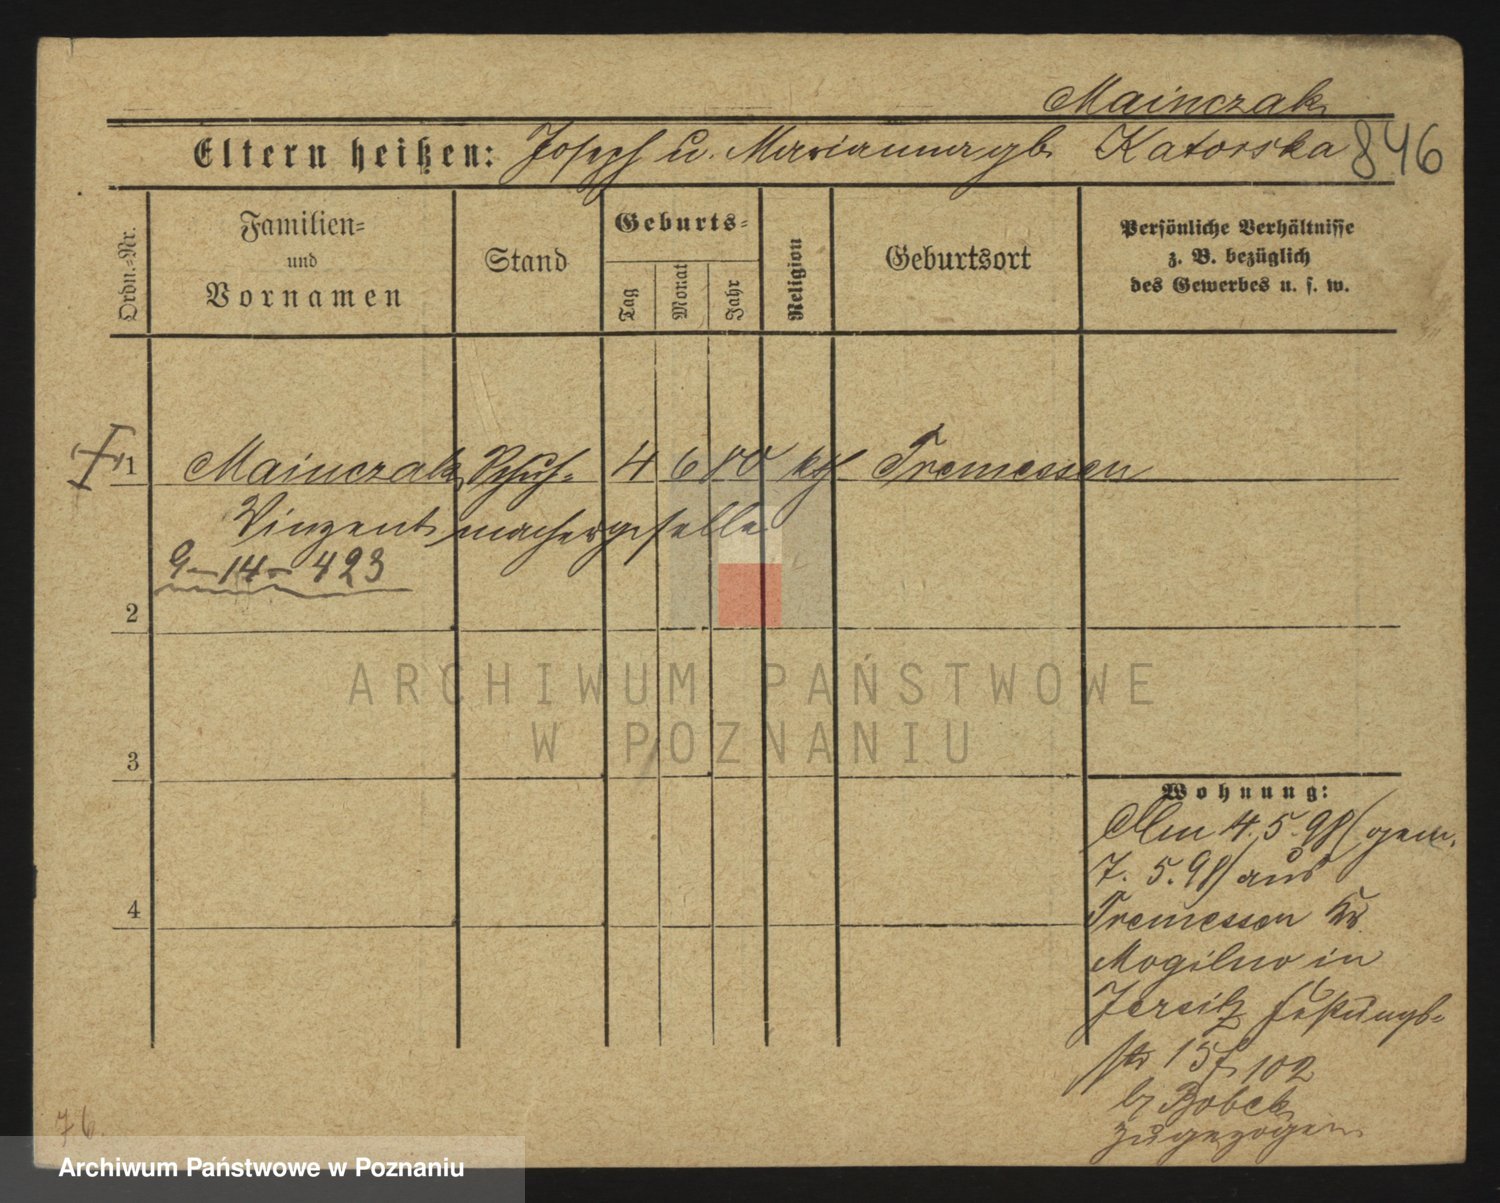 Mainczak
Eltern heißen: Joseph u. Marianna gb. Katorska 846
Ordn.-Nr.
Familien-
und
Vornamen
Stand
Geburts-
Tag
Monat
Jahr
Religion
Geburtsort
Persönliche Verhältnisse
z. B. bezüglich
des Gewerbes u. s. w.
1 Mainczak Schuh- 4 6 80 kth Tremessen
Vinzent machergeselle
9-14-423
2
ARCHIWUM PAŃSTWOWE
W POZNANIU
3
Wohnung:
Am 4.5.98 (gem.
7.5.98) aus
4
Tremessen Kr.
Mogilno in
Jersitz Festungs-
str 15 102
b/ Bobek
zugezogen
76.
Archiwum Państwowe w Poznaniu